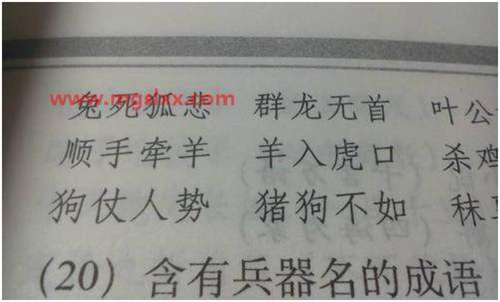 兔死狐悲 群龙无首 叶公
顺手牵羊 羊入虎口 杀鸡
狗仗人势 猪狗不如 秣
(20) 含有兵器名的成语